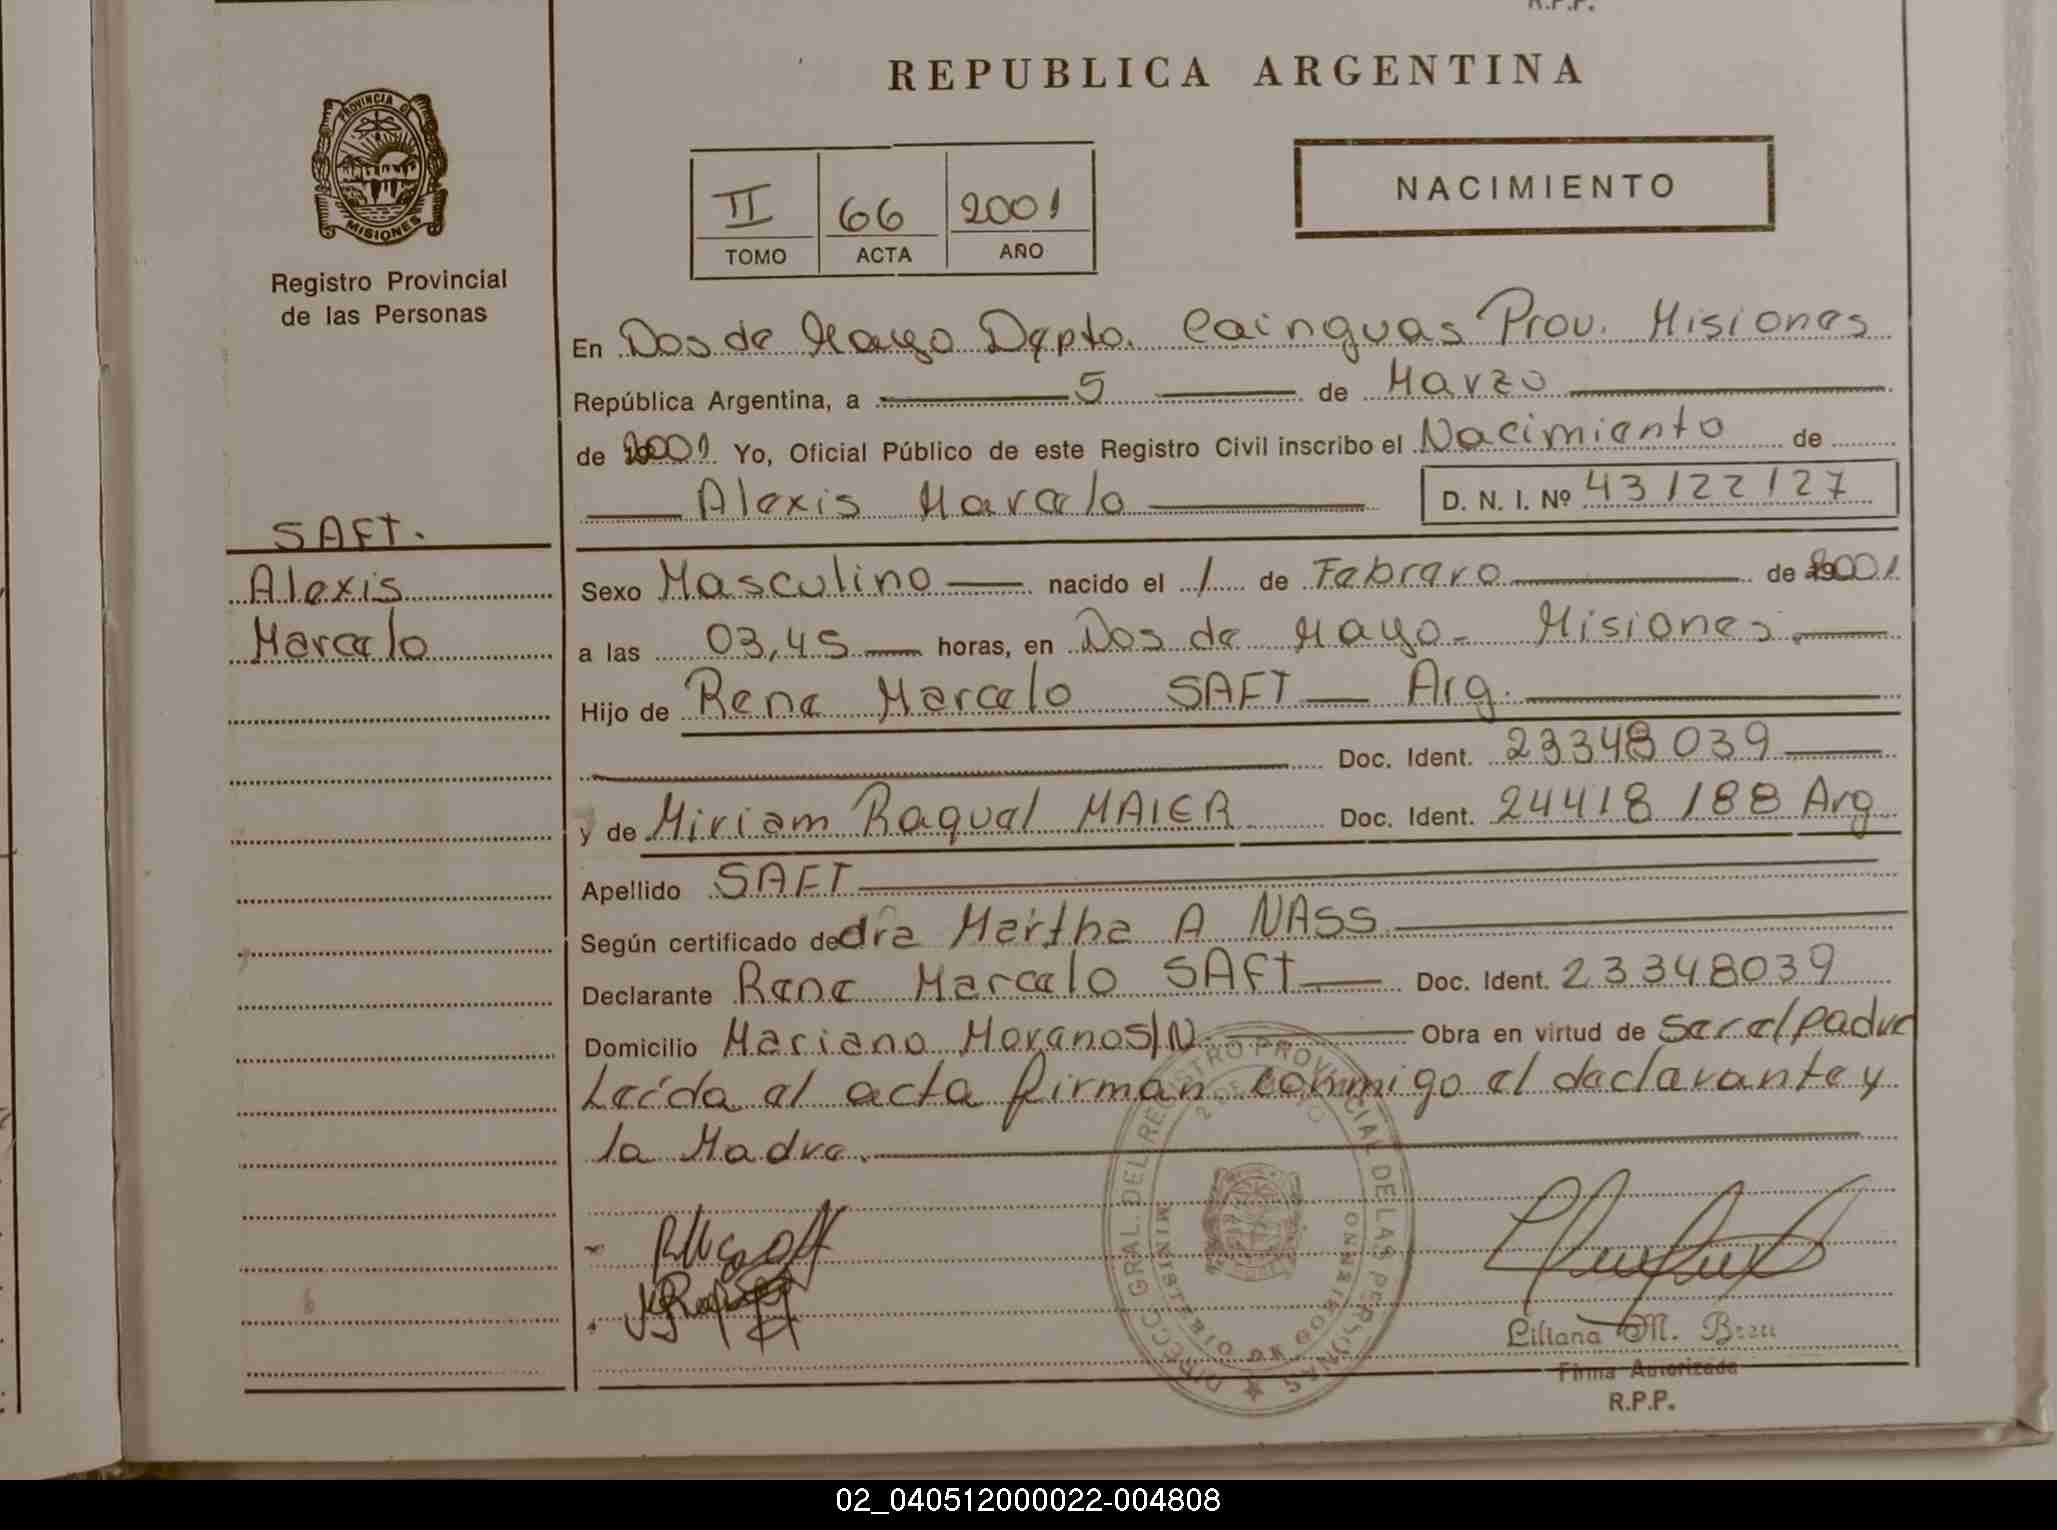 R.P.P.
REPUBLICA ARGENTINA
PROVINCIA DE
MISIONES
Registro Provincial
de las Personas
II 66 2001
TOMO ACTA AÑO
NACIMIENTO
En Dos de Mayo Depto. Cainguas Prov. Misiones
República Argentina, a 5 de Marzo
de 2001 Yo, Oficial Público de este Registro Civil inscribo el Nacimiento de
Alexis Marcelo D. N. I. Nº 43122127
SAFT.
Alexis
Marcelo
Sexo Masculino nacido el 1 de Febrero de 2001
a las 03,45 horas, en Dos de Mayo - Misiones
Hijo de Rene Marcelo SAFT Arg.
Doc. Ident. 23348039
y de Miriam Raquel MAIER Doc. Ident. 24418188 Arg
Apellido SAFT
Según certificado de dra Martha A NASS
Declarante Rene Marcelo SAFT Doc. Ident. 23348039
Domicilio Mariano Moreno S/N Obra en virtud de ser el padre
Leída el acta firman conmigo el declarante y
la Madre.
DIRECC GRAL. DEL REGISTRO PROVINCIAL DE LAS PERSONAS
2 DE MAYO
Liliana M. Breu
Firma Autorizada
R.P.P.
02_040512000022-004808